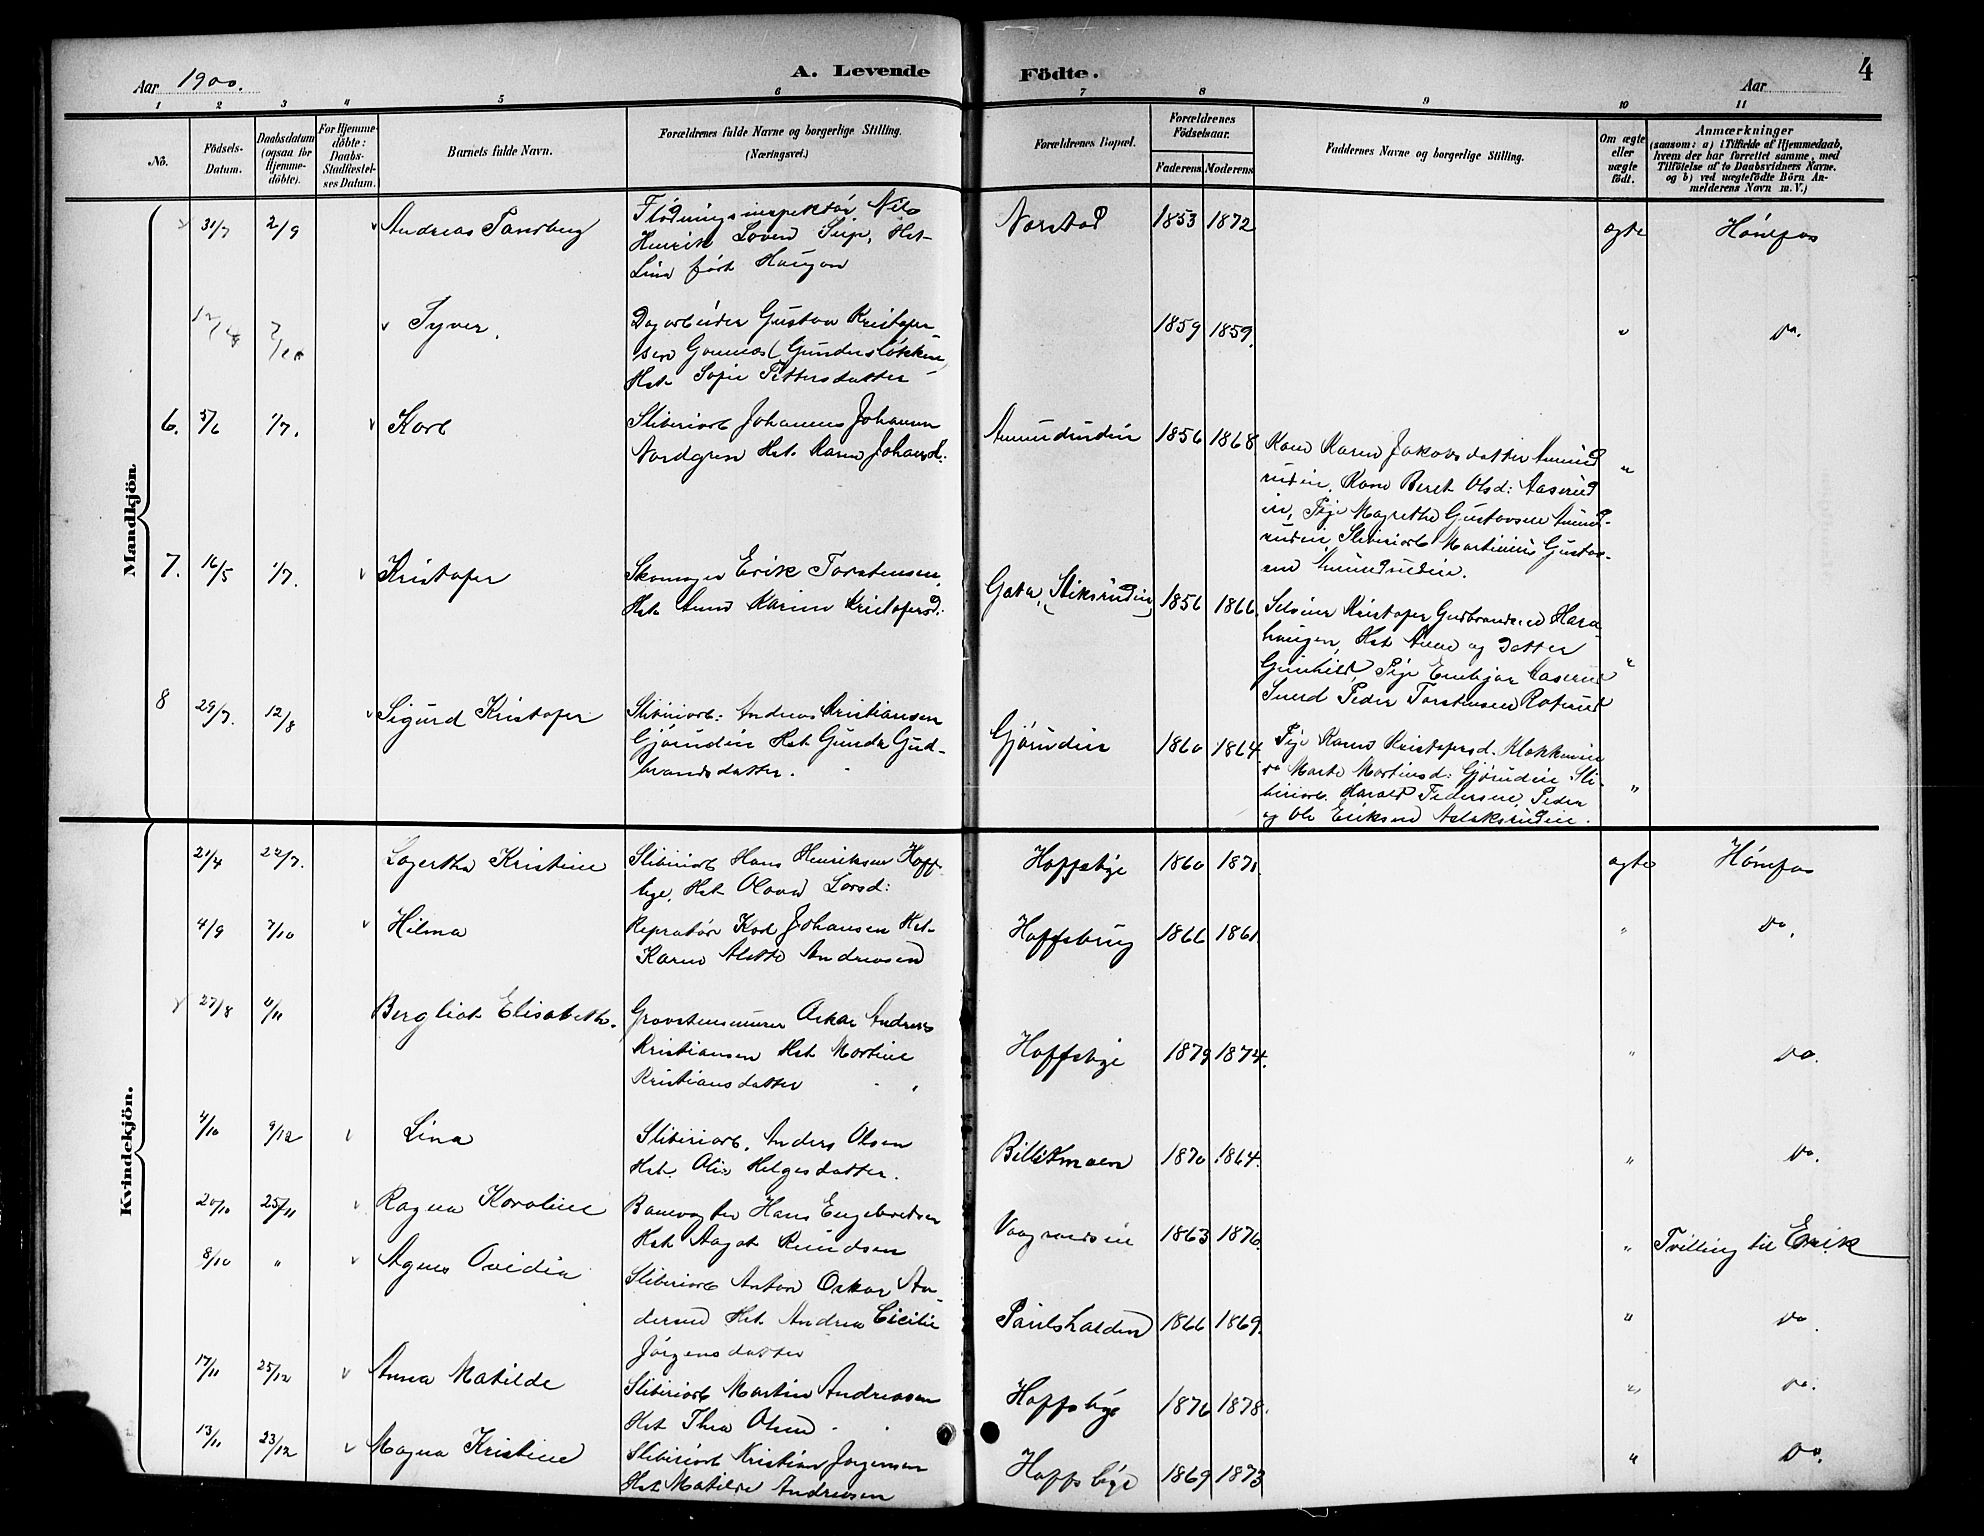 Aar 1900.
A. Levende
Födte.
Aar
4
1 2 3 4 5 6 7 8 9 10 11
No.
Födsels-Datum.
Daabsdatum (ogsaa for Hjemmedöbte).
For Hjemmedöbte: Daabs-Stadfæstelses Datum.
Barnets fulde Navn.
Forældrenes fulde Navne og borgerlige Stilling. (Næringsvei.)
Forældrenes Bopæl.
Forældrenes Födselsaar.
Faderens Moderens
Faddernes Navne og borgerlige Stilling.
Om ægte eller uægte födt.
Anmærkninger
(saasom: a) i Tilfælde af Hjemmedaab,
hvem der har forrettet samme, med
Tilföielse af to Daabsvidners Navne.
og b) ved uægtefödte Börn Anmelderens Navn m. V.)
Mandkjön
31/7 2/9 Andreas Sandberg
Flödningsinspektör Nils
Henrik Loven Seip, Hst
Lina född Haugan
Norstad 1853 1872 ægte Hönefos
Syver.
Dagarbeider Gustav Kristofer-
sen Gomnæs (Gundersløkken)
Hst Sofie Pettersdatter
1859 1859. " do.
6. 5/6 1/7. Karl
Sliberiarb Johannes Johannesen
Nordgren Hst. Karen Johansd:
Amundrudeie 1856 1868.
Kone Karen Jakobsdatter Amund
rudein, Kone Beret Olsd: Aaserud
ei, Pige Magrethe Gustavsen Amund-
rudein Sliberiarb Martinius Gustav-
sen Amundrudein. "
7. 16/5 1/7. Kristofer
Skomager Erik Torstensen,
Hst Anne Karine Kristofersd:
Gata, (Stiksrudein) 1856 1866.
Selveier Kristofer Gudbrandsen Hara-
haugen, Hst Anne og Datter
Gunhild, Pige Embjør Aaserud
Svend Peder Torstensen Roserud "
8 29/7. 12/8 Sigurd Kristofer
Sliberiarb: Andreas Kristiansen
Gjørudein Hst Gunda Gud-
brandsdatter.
Gjørudein 1860 1864.
Pige Karen Kristofersd. Klokkerein
do Marte Martinsd: Gjørudein Sli-
beriarb. Harald Pedersen, Peder
og Ole Eriksen Aslaksrudein. "
Kvindekjön.
21/4 22/7. Lagertha Kristine
Sliberiarb Hans Henriksen Hoffs-
bye, Hst Olava Larsd:
Hoffsbye 1860 1871. ægte Hönefos
4/9 7/10 Hilma
Repratør Karl Johansen Hst
Karen Alette Andreasen
Hoffsbrug 1866 1861. " do.
27/8 4/11 Bergliot Elisabeth.
Gravstensmurer Oskar Andreas
Kristiansen Hst Martine
Kristiansdatter
Hoffsbye 1879 1874. " do.
4/10 9/12 Lina
Sliberiarb. Anders Olsen
Hst. Olia Helgesdatter.
Billitmoen 1870 1864. " do.
20/10 25/11 Ragna Karoline
Banevogter Hans Engebretsen
Hst Aagot Knudsen
Vaagaardseie 1863 1876. " Tvilling til Erik
8/10 " Agnes Ovidia
Sliberiarb Anton Oskar An-
dersen Hst Andrea Cicilie
Jörgensdatter
Paulshalden 1866 1869. " do.
17/11 25/12 Anna Matilde
Sliberiarb Martin Andreasen
Hst Thea Olsen.
Hoffsbye 1876 1878. " do.
13/11 23/12 Magna Kristine
Sliberiarb Kristian Jørgensen
Hst Matilde Andreasen
Hoffsbye 1869 1873 " do.